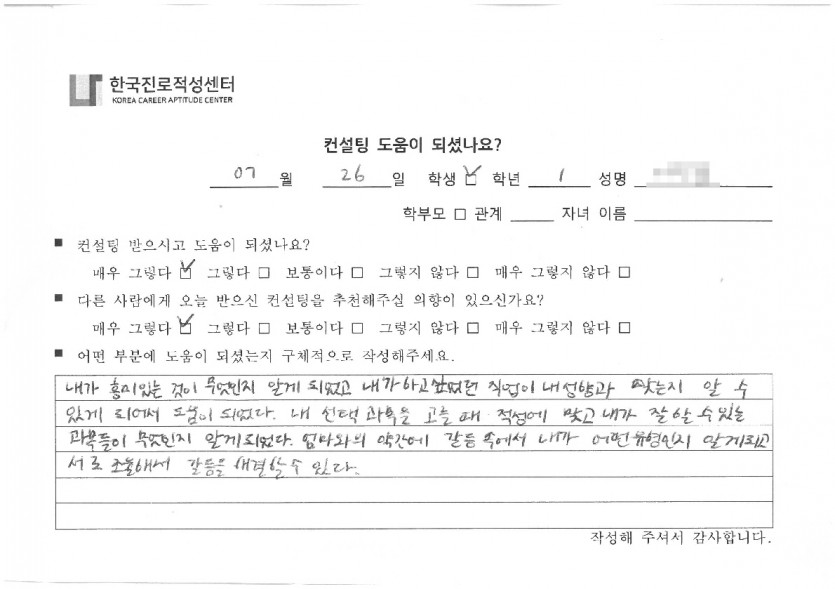 한국진로적성센터
KOREA CAREER APTITUDE CENTER
컨설팅 도움이 되셨나요?
07 월 26 일 학생 ☑ 학년 1 성명
학부모 □ 관계 자녀 이름
■ 컨설팅 받으시고 도움이 되셨나요?
매우 그렇다 ☑ 그렇다 □ 보통이다 □ 그렇지 않다 □ 매우 그렇지 않다 □
■ 다른 사람에게 오늘 받으신 컨선팅을 추천해주실 의향이 있으신가요?
매우 그렇다 ☑ 그렇다 □ 보통이다 □ 그렇지 않다 □ 매우 그렇지 않다 □
■ 어떤 부분에 도움이 되셨는지 구체적으로 작성해주세요.
내가 흥미있는 것이 무엇인지 알게 되었고 내가 하고싶었던 직업이 내 성향과 맞는지 알 수
있게 되어서 도움이 되었다. 내 선택 과목을 고를 때 적성에 맞고 내가 잘 할 수 있는
과목들이 무엇인지 알게 되었다. 엄마와의 약간에 갈등 속에서 내가 어떤 유형인지 알게되고
서로 조율해서 갈등을 해결할 수 있다.
작성해 주셔서 감사합니다.